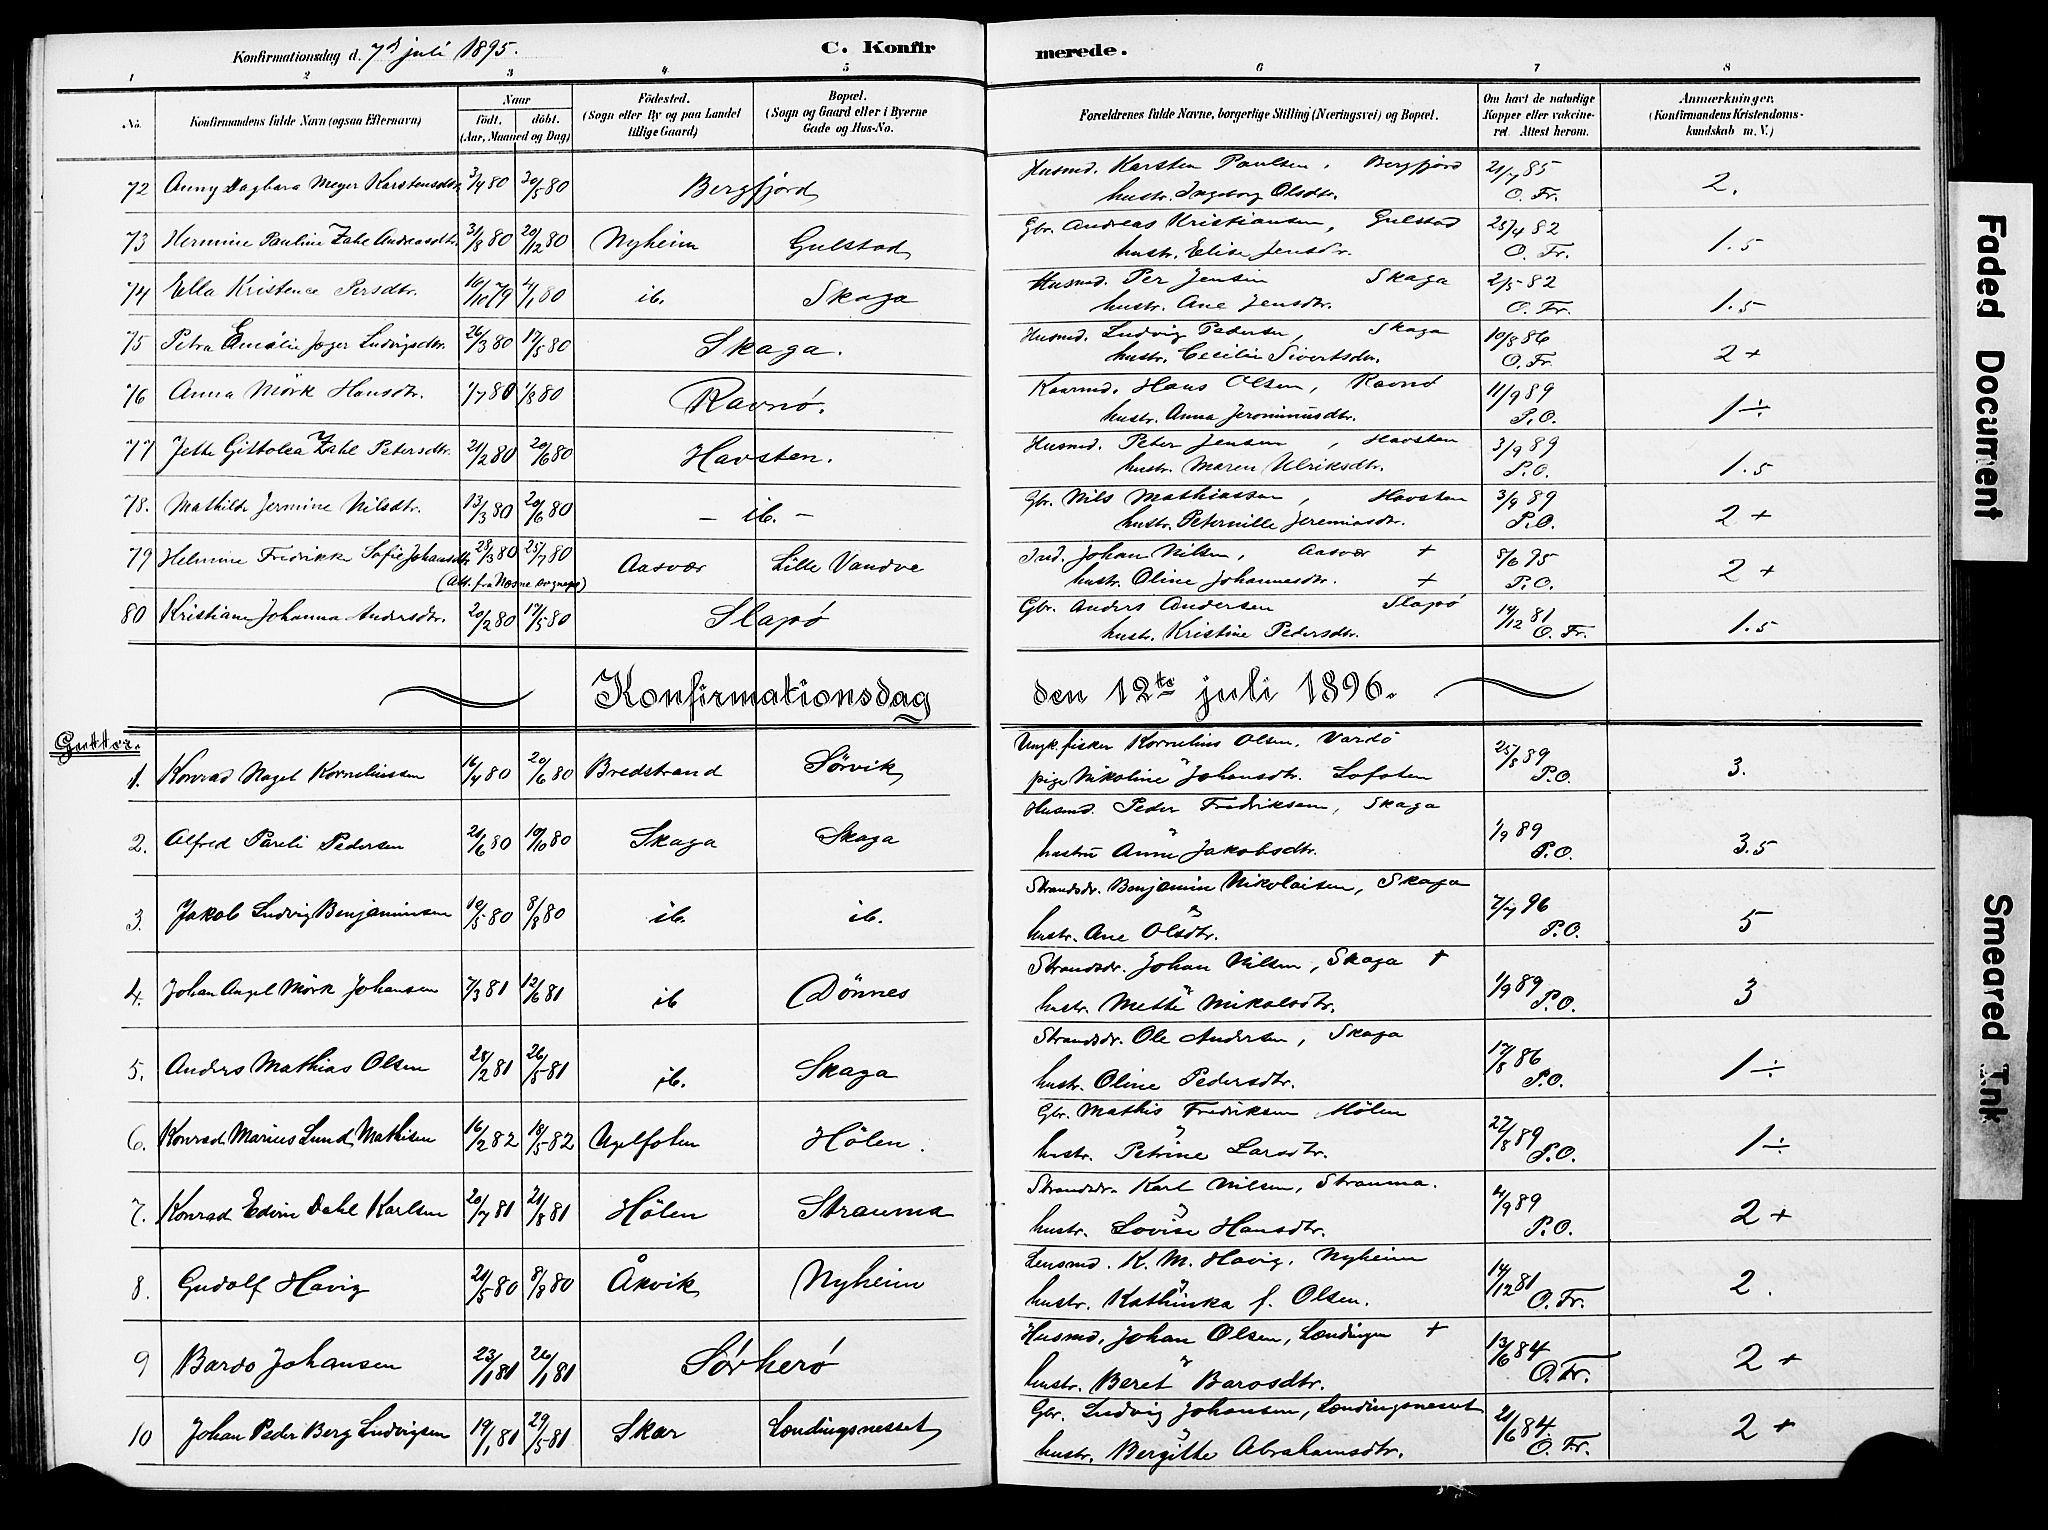 Konfirmationsdag d. 7d juli 1895. C. Konfirmerede.
1 2 3 4 5 6 7 8
No. Konfirmandens fulde Navn (ogsaa Efternavn) Naar født. døbt. (Aar, Maaned og Dag) Fødested. (Sogn eller By og paa Landet tillige Gaard) Bopæl. (Sogn og Gaard eller i Byerne Gade og Hus-No. Forældrenes fulde Navne, borgerlige Stilling (Næringsvei) og Bopæl. Om havt de naturlige Kopper eller vakcineret. Attest herom. Anmærkninger. (Konfirmandens Kristendomskundskab m. V.)
72 Anny Dagbara Meyer Karstensdtr. 3/4 80 30/5 80 Bergfjord Husmd. Karsten Paulsen, Bergfjord 21/7 85 2.
hustr. Ingeborg Olsdtr. O. Fr.
73 Hermine Pauline Zahl Andreasdtr. 31/8 80 20/12 80 Nyheim Gulstad Gbr. Andreas Kristiansen, Gulstad 25/4 82 1.5
hustr. Elise Jensdtr. O. Fr.
74 Ella Kristence Persdtr. 16/10 79 4/1 80 ib. Skaga Husmd. Per Jensen Skaga 2/5 82 1.5
hustr. Ane Jensdtr. O. Fr.
75 Petra Emilie Jager Ludvigsdtr. 26/3 80 17/5 80 Skaga. Husmd. Ludvig Pedersen, Skaga 10/8 86 2+
hustr. Cecilie Sivertsdtr. O. Fr.
76 Anna Mørk Hansdtr. 1/7 80 1/8 80 Ravnø. Kaarmd. Hans Olsen, Ravnø 11/9 89 1÷
hustr. Anna Jeronimusdtr. P.O.
77 Jette Gittolea Zahl Petersdtr. 21/2 80 20/6 80 Havsten. Husmd. Peter Jensen, Havsten 3/9 89 1.5
hustr. Maren Ulriksdtr. P.O.
78. Mathilde Jermine Nilsdtr. 13/3 80 20/6 80 – ib. – Gbr. Nils Mathiassen, Havsten 3/9 89 2+
hustr. Peternille Jeremiasdtr. P.O.
79 Helmine Fredrikke Sofie Johansdtr. 23/3 80 25/7 80 Aasvær Lille Vandve Ind. Johan Nilsen, Aasvær + 8/6 95 2+
(Att. fra Næsne sogneprs) hustr. Oline Johannesdtr. + P.O.
80 Kristiane Johanna Andersdtr. 20/2 80 17/5 80 Slapø Gbr. Anders Andersen Slapø 14/12 81 1.5
hustr. Kristine Pedersdtr. O. Fr.
Konfirmationsdag den 12te juli 1896.
Gutter.
1. Konrad Nagel Korneliussen 16/4 80 20/6 80 Bredstrand Sørvik Ungk. fisker Kornelius Olsen, Vardø 25/8 89 3.
pige Nikoline Johansdtr. Lofoten P.O.
2. Alfred Pareli Pedersen 21/6 80 10/10 80 Skaga Skaga Husmd. Peder Fredriksen, Skaga 1/9 89 3.5
hustru Anne Jakobsdtr. P.O.
3. Jakob Ludvig Benjaminsen 10/5 80 8/8 80 ib. ib. Strandsdr. Benjamin Nikolaisen, Skaga 7/7 96 5
hustr. Ane Olsdtr. P.O.
4. Johan Angel Mørk Johansen 7/3 81 12/6 81 ib Dønnes Strandsdr. Johan Nilsen, Skaga + 1/9 89 3
hustr. Mette Nikolsdtr. P.O.
5. Anders Mathias Olsen 28/2 81 26/5 81 ib. Skaga Strandsdr. Ole Andersen, Skaga 17/8 86 1÷
hustr. Oline Pedersdtr. P.O.
6. Konrad Marius Lund Mathisen 16/2 82 18/5 82 Ugelfoten Hölen. Gbr. Mathis Fredriksen Hölen 27/8 89 1÷
hustr. Petrine Larsdtr. P.O.
7. Konrad Edvin Dahl Karlsen 20/7 81 21/8 81 Hölen Strauma Strandsdr. Karl Nilsen, Strauma. 4/9 89 2+
hustr. Lovise Hansdtr. P.O.
8. Gudolf Havig 21/5 80 8/8 80 Åkvik Nyheim Lensmd. K. M. Havig, Nyheim 14/12 81 2.
hustr. Kathinka f. Olsen. O. Fr.
9 Bardo Johansen 23/1 81 26/1 81 Sørherø Husmd. Johan Olsen, Lændingen + 13/6 84 2+
hustr. Beret Barosdtr. O. Fr.
10 Johan Peder Berg Ludvigsen 19/1 81 29/5 81 Skar Lændingsnesset Gbr. Ludvig Johansen, Lændingsneset 21/6 84. 2+
hustr. Bergitte Abrahamsdtr. O. Fr.
Faded Document
Smeared Ink